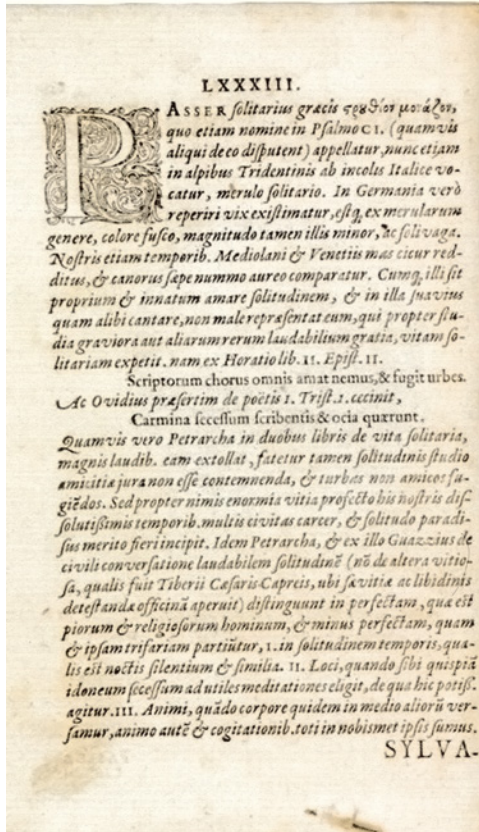 LXXXIII.
PASSER solitarius græcis ςρυθίον μονάζον,
quo etiam nomine in Psalmo CI. (quamvis
aliqui de eo disputent) appellatur, nunc etiam
in alpibus Tridentinis ab incolis Italice vo-
catur, merulo solitario. In Germania verò
reperiri vix existimatur, estq; ex merularum
genere, colore fusco, magnitudo tamen illis minor, ac solivaga.
Nostris etiam temporib. Mediolani & Venetiis mas cicur red-
ditus, & canorus sæpe nummo aureo comparatur. Cumq; illi sit
proprium & innatum amare solitudinem, & in illa suavius
quam alibi cantare, non male repræsentat eum, qui propter stu-
dia graviora aut aliarum rerum laudabilium gratia, vitam so-
litariam expetit. nam ex Horatio lib. II. Epist. II.
Scriptorum chorus omnis amat nemus, & fugit urbes.
Ac Ovidius præsertim de poëtis I. Trist. I. cecinit,
Carmina secessum scribentis & ocia quærunt.
Quamvis vero Petrarcha in duobus libris de vita solitaria,
magnis laudib. eam extollat, fatetur tamen solitudinis studio
amicitiæ jura non esse contemnenda, & turbas non amicos fu-
giēdos. Sed propter nimis enormia vitia profecto his nostris dis-
solutissimis temporib. multis civitas carcer, & solitudo paradi-
sus merito fieri incipit. Idem Petrarcha, & ex illo Guazzius de
civili conversatione laudabilem solitudinē (nō de altera vitio-
sa, qualis fuit Tiberii Cæsaris Capreis, ubi sævitiæ ac libidinis
detestandæ officinā aperuit) distinguunt in perfectam, quæ est
piorum & religiosorum hominum, & minus perfectam, quam
& ipsam trifariam partiūtur, I. in solitudinem temporis, qua-
lis est noctis silentium & similia. II. Loci, quando sibi quispiā
idoneum secessum ad utiles meditationes eligit, de qua hic potiss.
agitur. III. Animi, quādo corpore quidem in medio aliorū ver-
samur, animo autē & cogitationib. toti in nobismet ipsis sumus.
SYLVA-